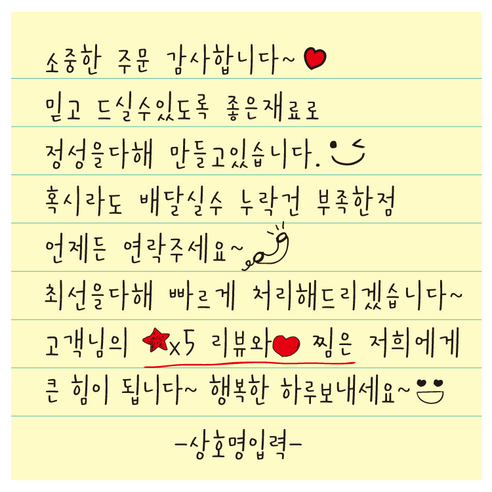 소중한 주문 감사합니다~
믿고 드실수있도록 좋은재료로
정성을다해 만들고있습니다.
혹시라도 배달실수 누락건 부족한점
언제든 연락주세요~
최선을다해 빠르게 처리해드리겠습니다~
고객님의 x5 리뷰와 찜은 저희에게
큰 힘이 됩니다~ 행복한 하루보내세요~
-상호명입력-